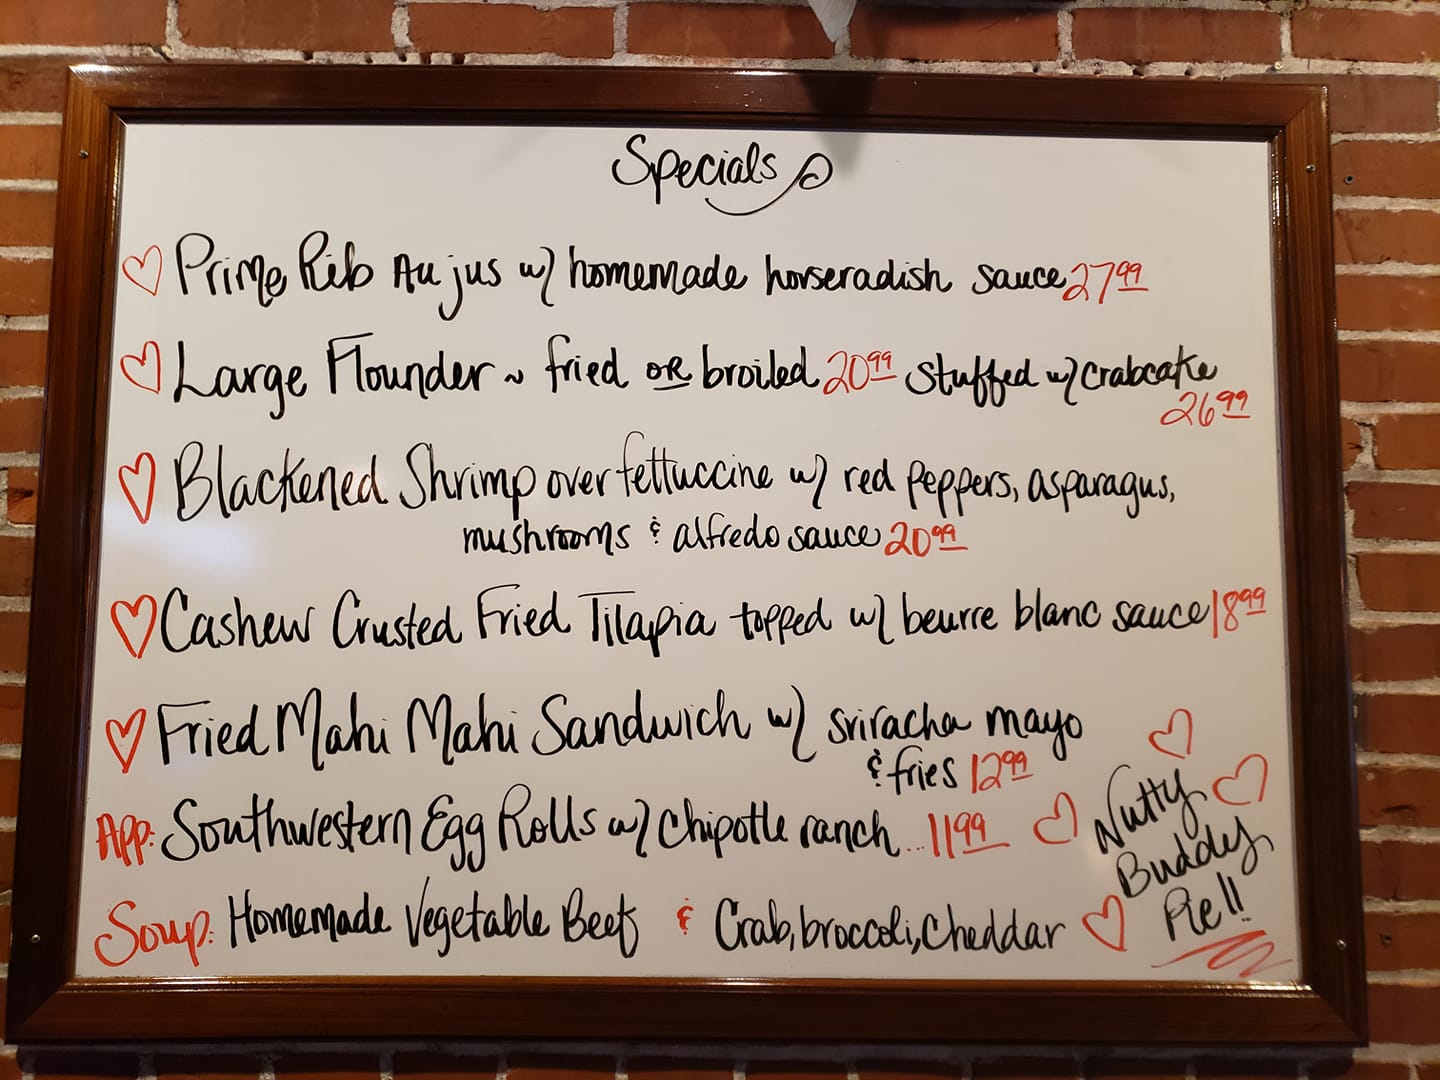 Specials
Prime Rib Au jus w/ homemade horseradish sauce 27 99
Large Flounder ~ fried OR broiled 20 99 stuffed w/ crabcake
26 99
Blackened Shrimp over fettuccine w/ red peppers, asparagus,
mushrooms & alfredo sauce 20 99
Cashew Crusted Fried Tilapia topped w/ beurre blanc sauce 18 99
Fried Mahi Mahi Sandwich w/ sriracha mayo
& fries 12 99
App: Southwestern Egg Rolls w/ Chipotle ranch... 11 99
Soup: Homemade Vegetable Beef & Crab, broccoli, Cheddar
Nutty
Buddy
Pie!!